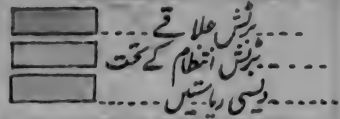 برٹش علاقے
برٹش انتظام کے تحت
دیسی ریاستیں